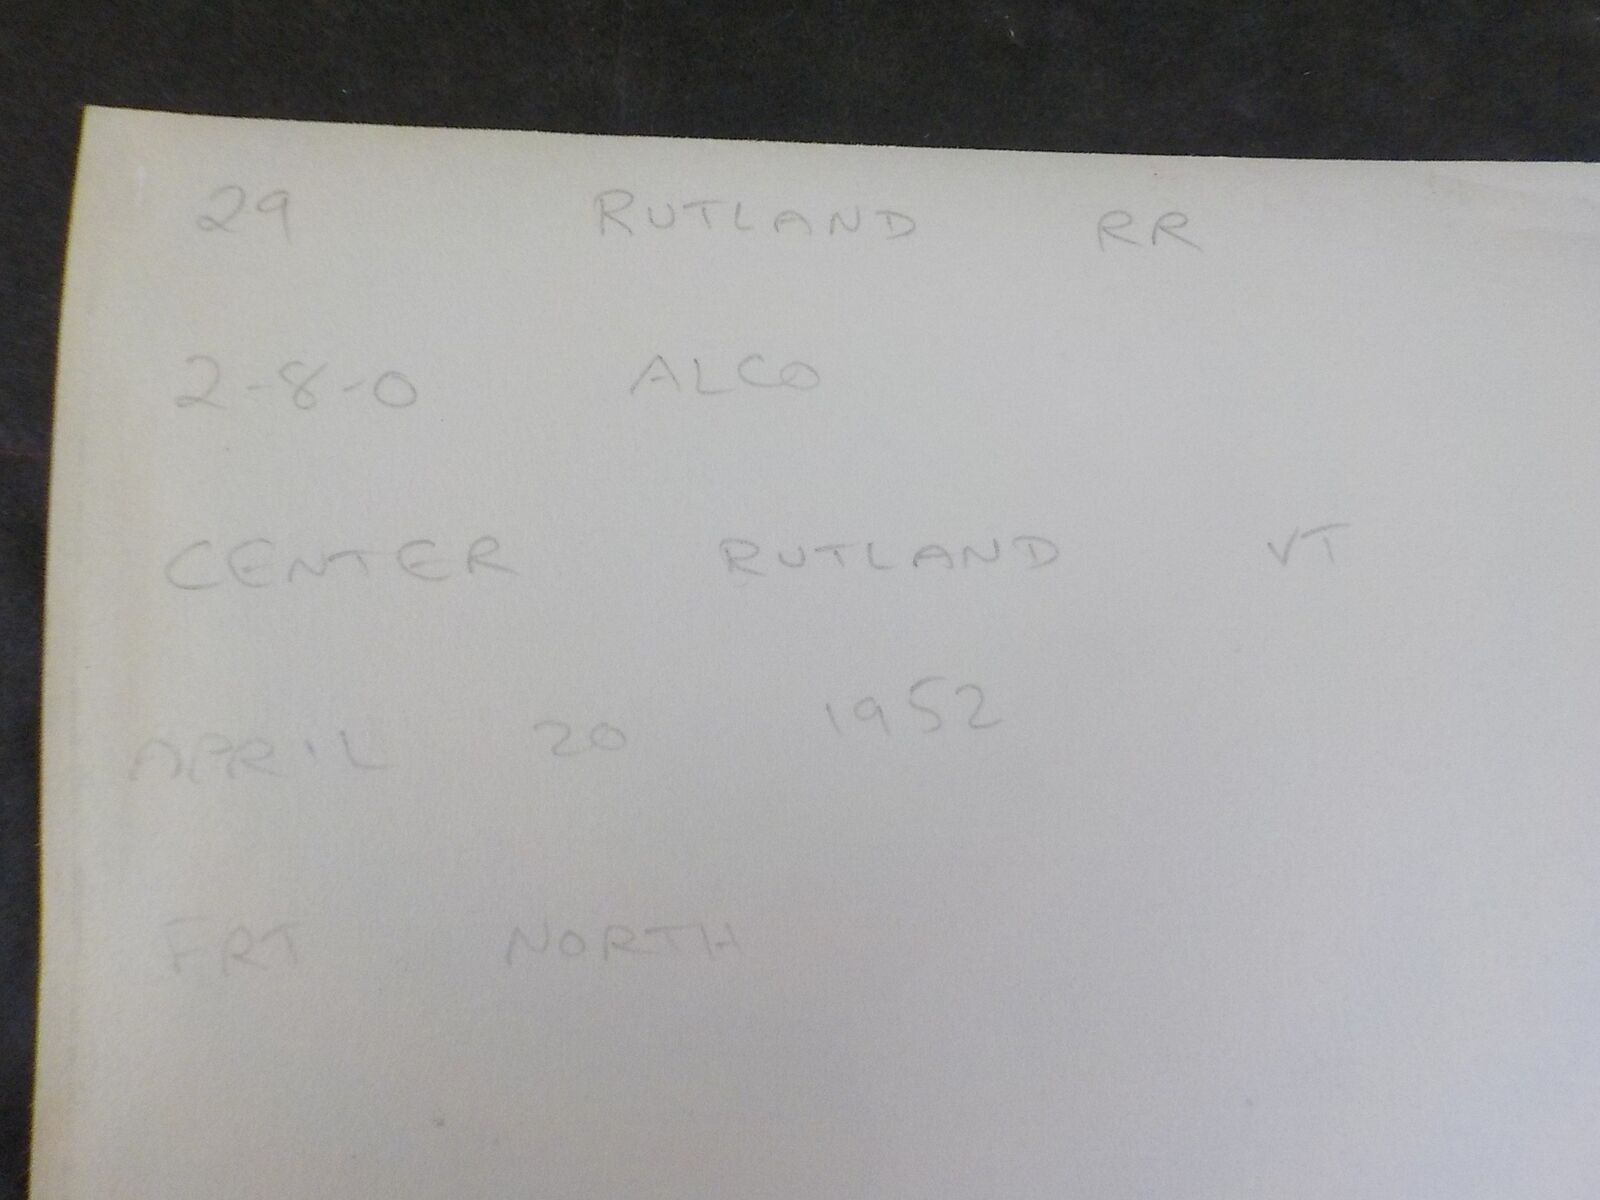 29 RUTLAND RR
2-8-0 ALCO
CENTER RUTLAND VT
APRIL 20 1952
FRT NORTH